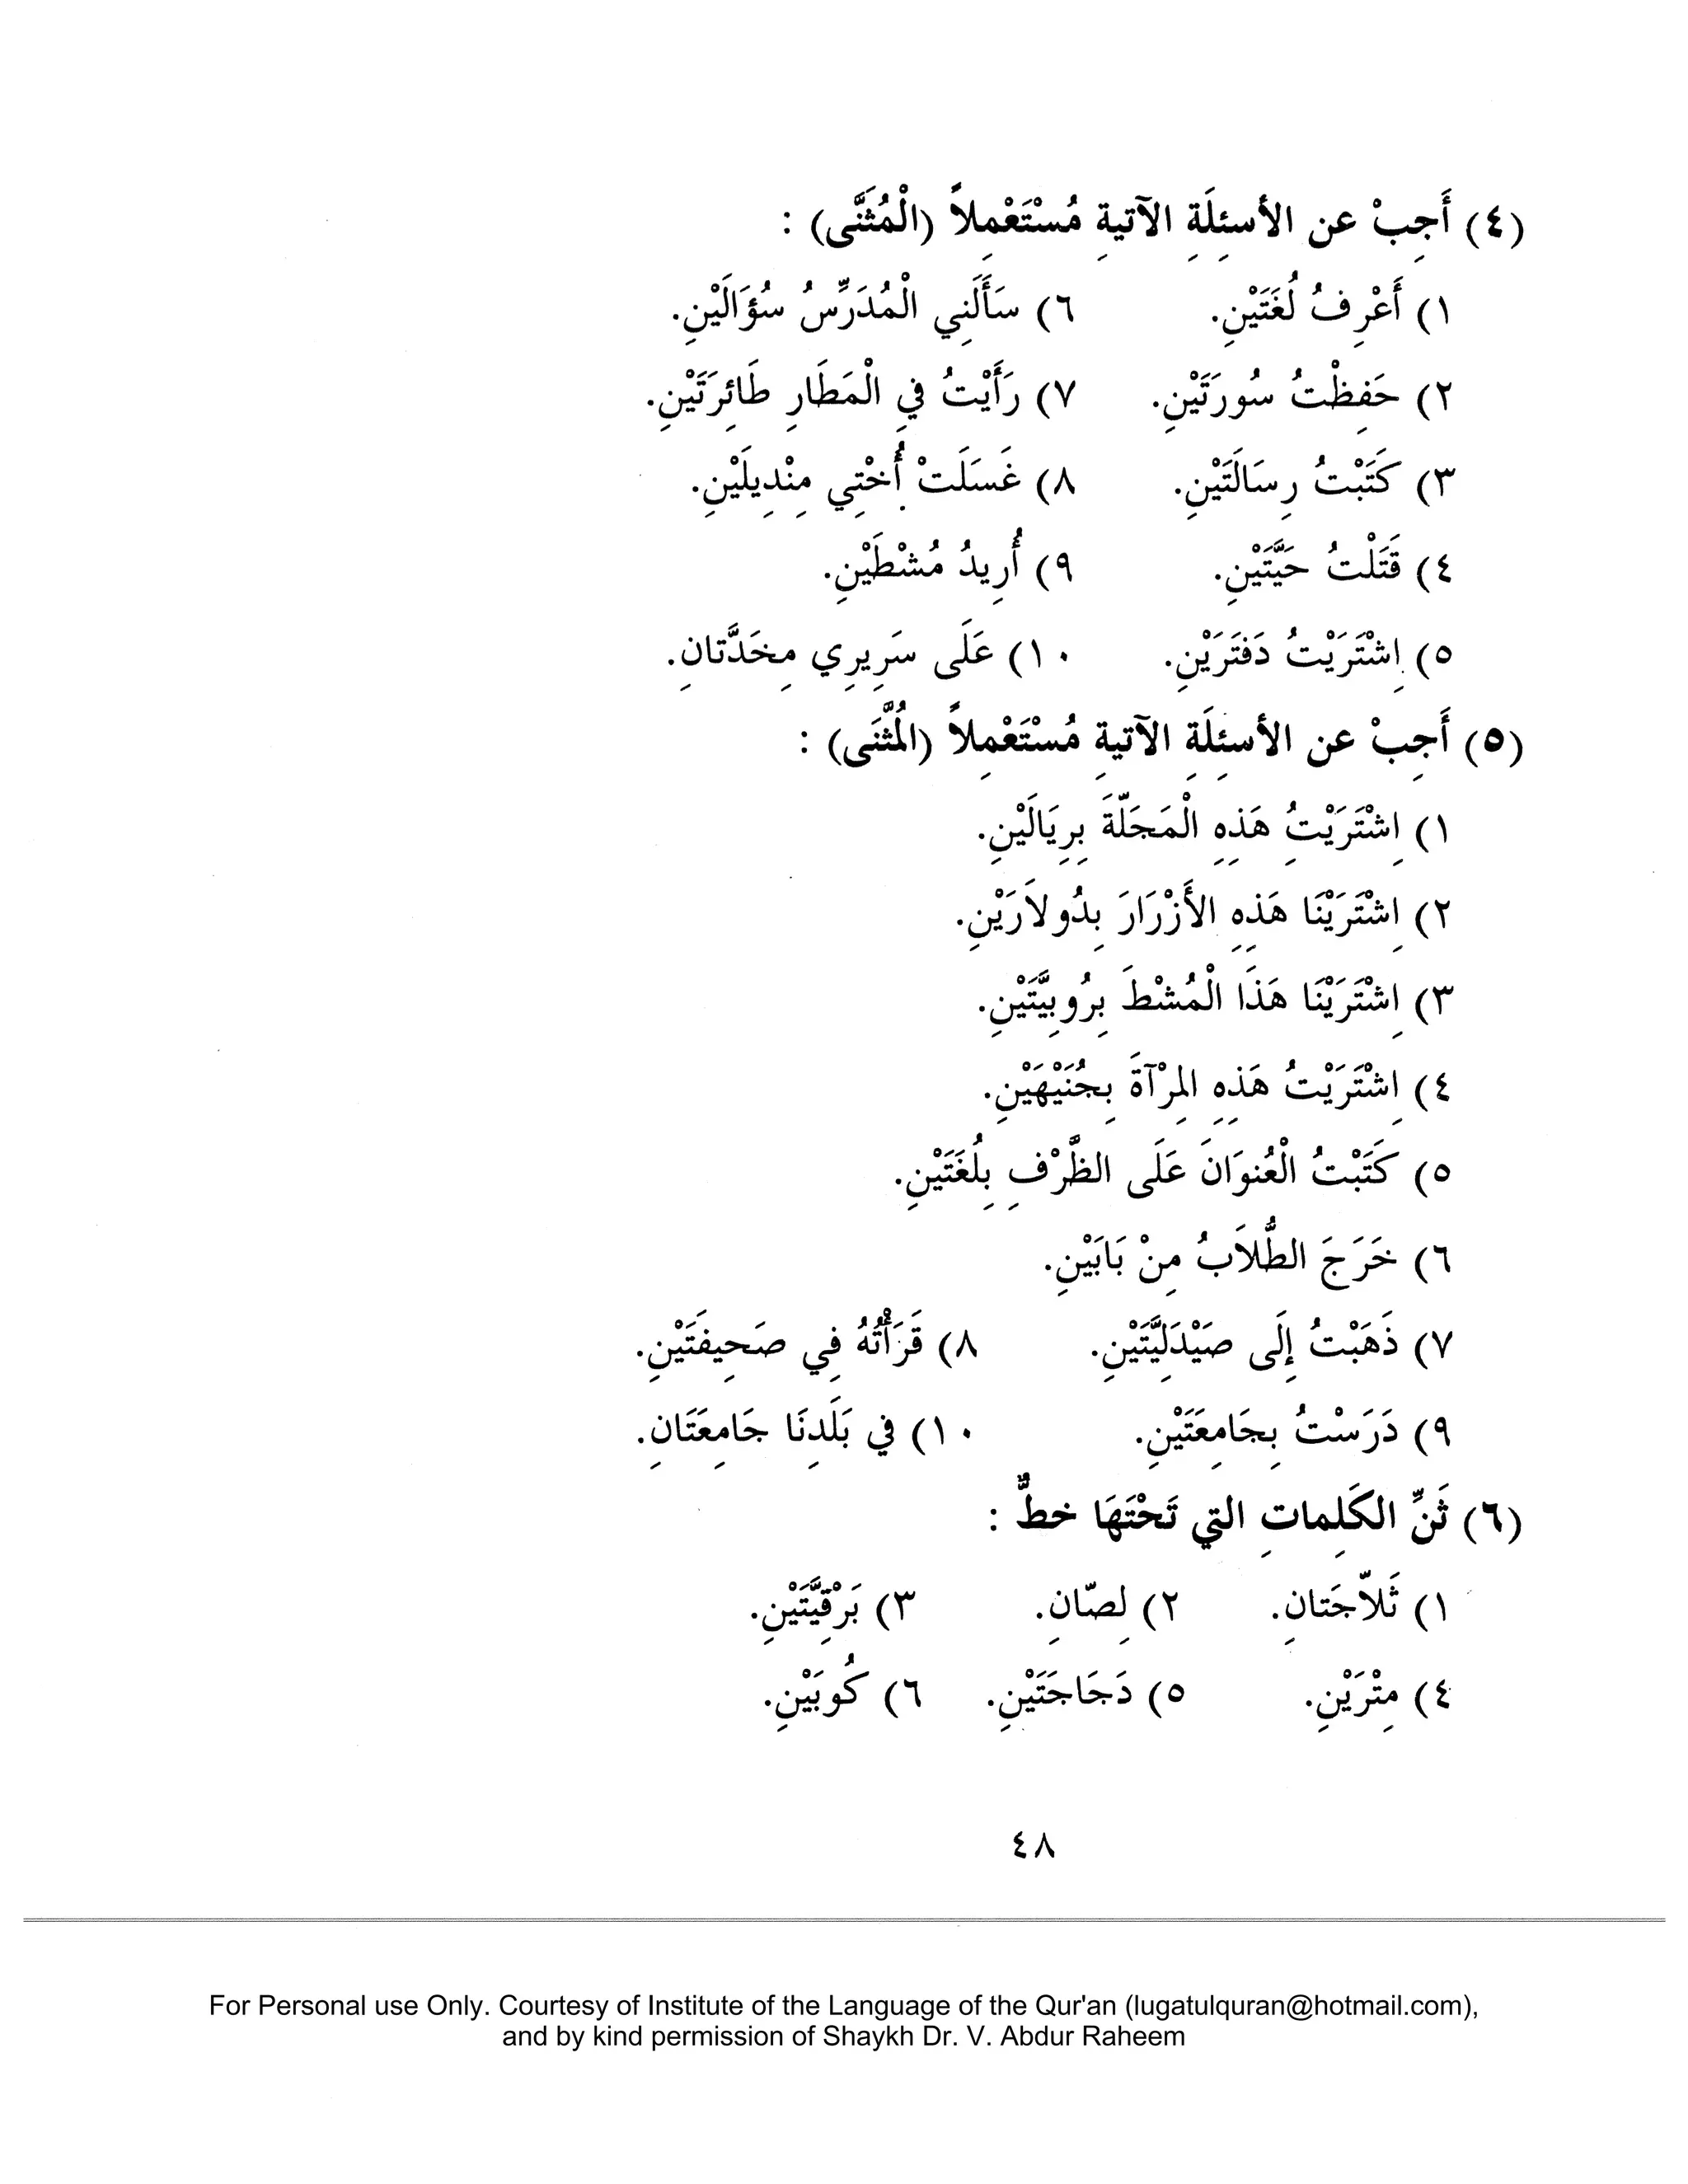 (٤) أَجِبْ عن الأسئِلَةِ الآتيةِ مُسْتَعْمِلاً (الْمُثَنَّى) :
١) أَعْرِفُ لُغَتَيْنِ. ٦) سَأَلَنِي الْمُدَرِّسُ سُؤَالَيْنِ.
٢) حَفِظْتُ سُورَتَيْنِ. ٧) رَأَيْتُ فِي الْمَطَارِ طَائِرَتَيْنِ.
٣) كَتَبْتُ رِسَالَتَيْنِ. ٨) غَسَلَتْ أُخْتِي مِنْدِيلَيْنِ.
٤) قَتَلْتُ حَيَّتَيْنِ. ٩) أُرِيدُ مُشْطَيْنِ.
٥) اِشْتَرَيْتُ دَفْتَرَيْنِ. ١٠) عَلَى سَرِيرِي مِخَدَّتانِ.
(٥) أَجِبْ عن الأسئِلَةِ الآتيةِ مُسْتَعْمِلاً (الْمُثَنَّى) :
١) اِشْتَرَيْتُ هَذِهِ الْمَجَلَّةَ بِرِيَالَيْنِ.
٢) اِشْتَرَيْنَا هَذِهِ الأَزْرَارَ بِدُولاَرَيْنِ.
٣) اِشْتَرَيْنَا هَذَا الْمُشْطَ بِرُوبِيَّتَيْنِ.
٤) اِشْتَرَيْتُ هَذِهِ المِرْآةَ بِجُنَيْهَيْنِ.
٥) كَتَبْتُ الْعُنوَانَ عَلَى الظَّرْفِ بِلُغَتَيْنِ.
٦) خَرَجَ الطُّلاَبُ مِنْ بَابَيْنِ.
٧) ذَهَبْتُ إِلَى صَيْدَلِيَّتَيْنِ. ٨) قَرَأْتُهُ فِي صَحِيفَتَيْنِ.
٩) دَرَسْتُ بِجَامِعَتَيْنِ. ١٠) فِي بَلَدِنَا جَامِعَتَانِ.
(٦) ثَنِّ الكَلِماتِ التي تَحْتَهَا خطٌّ :
١) ثَلاَّجَتانِ. ٢) لِصّانِ. ٣) بَرْقِيَّتَيْنِ.
٤) مِتْرَيْنِ. ٥) دَجَاجَتَيْنِ. ٦) كُوبَيْنِ.
٤٨
For Personal use Only. Courtesy of Institute of the Language of the Qur'an (lugatulquran@hotmail.com),
and by kind permission of Shaykh Dr. V. Abdur Raheem